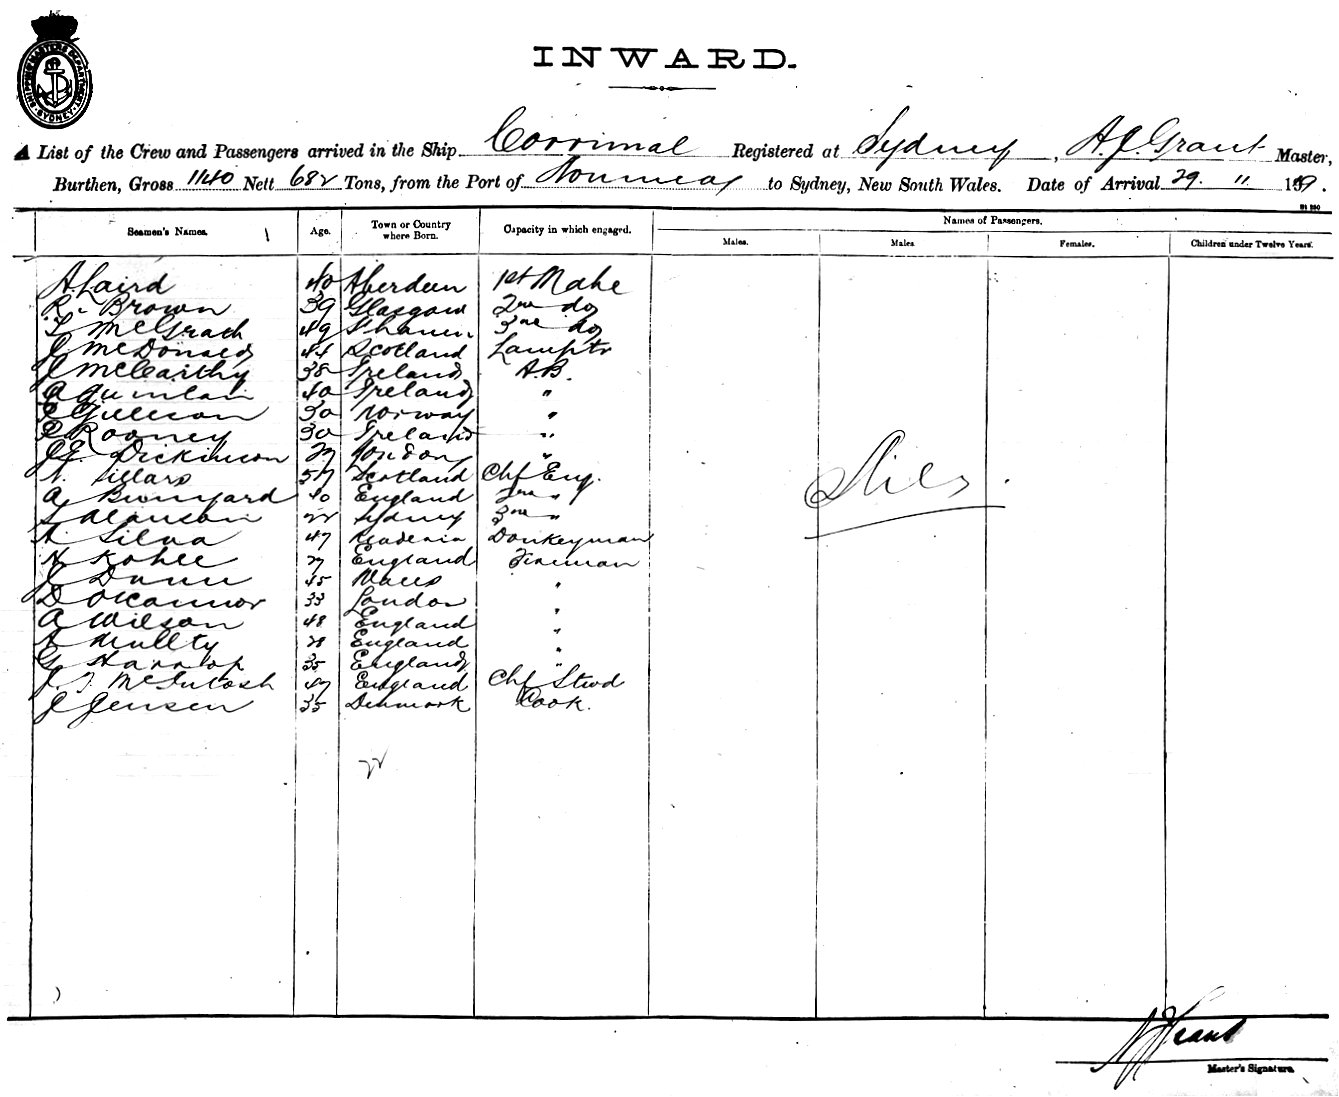 SHIPPING MASTER'S DEPARTMENT SYDNEY
INWARD.
A List of the Crew and Passengers arrived in the Ship Corrimal Registered at Sydney, A. J. Grant Master,
Burthen, Gross 1140 Nett 682 Tons, from the Port of Noumea to Sydney, New South Wales. Date of Arrival 29. 11. 19
Seamen's Names. Age. Town or Country where Born. Capacity in which engaged. Names of Passengers.
Males. Males Females. Children under Twelve Years.
A. Laird 40 Aberdeen 1st Mate
R. Brown 39 Glasgow 2nd do
T McGrath 49 3rd do
J McDonald 44 Scotland Lamptr
J McCarthy 38 Ireland A.B.
A Quinlan 40 Ireland "
E 30 Norway "
E Rooney 30 Ireland "
J. Dickinson 27 London "
57 Scotland Chf Eng.
A Bunyard 40 England 2nd "
22 Sydney 3rd "
A. Silva 47 Donkeyman
H 27 England Fireman
J Dunn 45 Wales "
D O'Connor 33 London "
A Wilson 48 England "
A 28 England "
G Harrop 35 England "
J. T. McIntosh 47 England Chf Stwd
J Jensen 35 Denmark Cook.
22
A J Grant
Master's Signature.